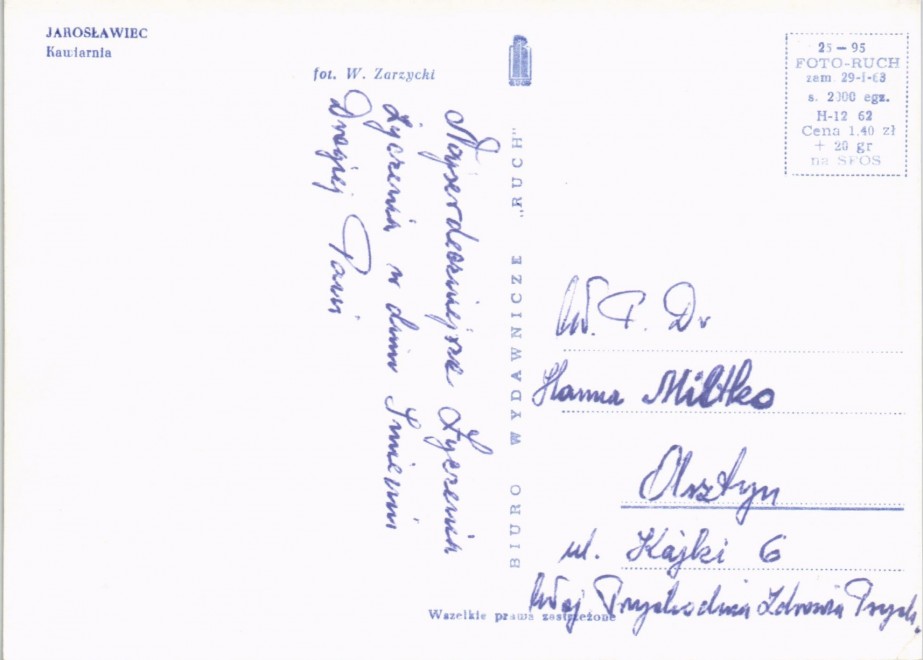 JAROSŁAWIEC
Kawiarnia
fot. W. Zarzycki
Najserdeczniejsze Życzenia
Życzenia w dniu Imienin
Drogiej Pani
BIURO WYDAWNICZE „RUCH"
25 — 95
FOTO-RUCH
zam. 29-I-63
s. 2000 egz.
H-12 62
Cena 1.40 zł
+ 20 gr
na SFOS
W. P. Dr
Hanna Miltko
Olsztyn
ul. Kajki 6
Woj Przychodnia Zdrowia Psych.
Wszelkie prawa zastrzeżone